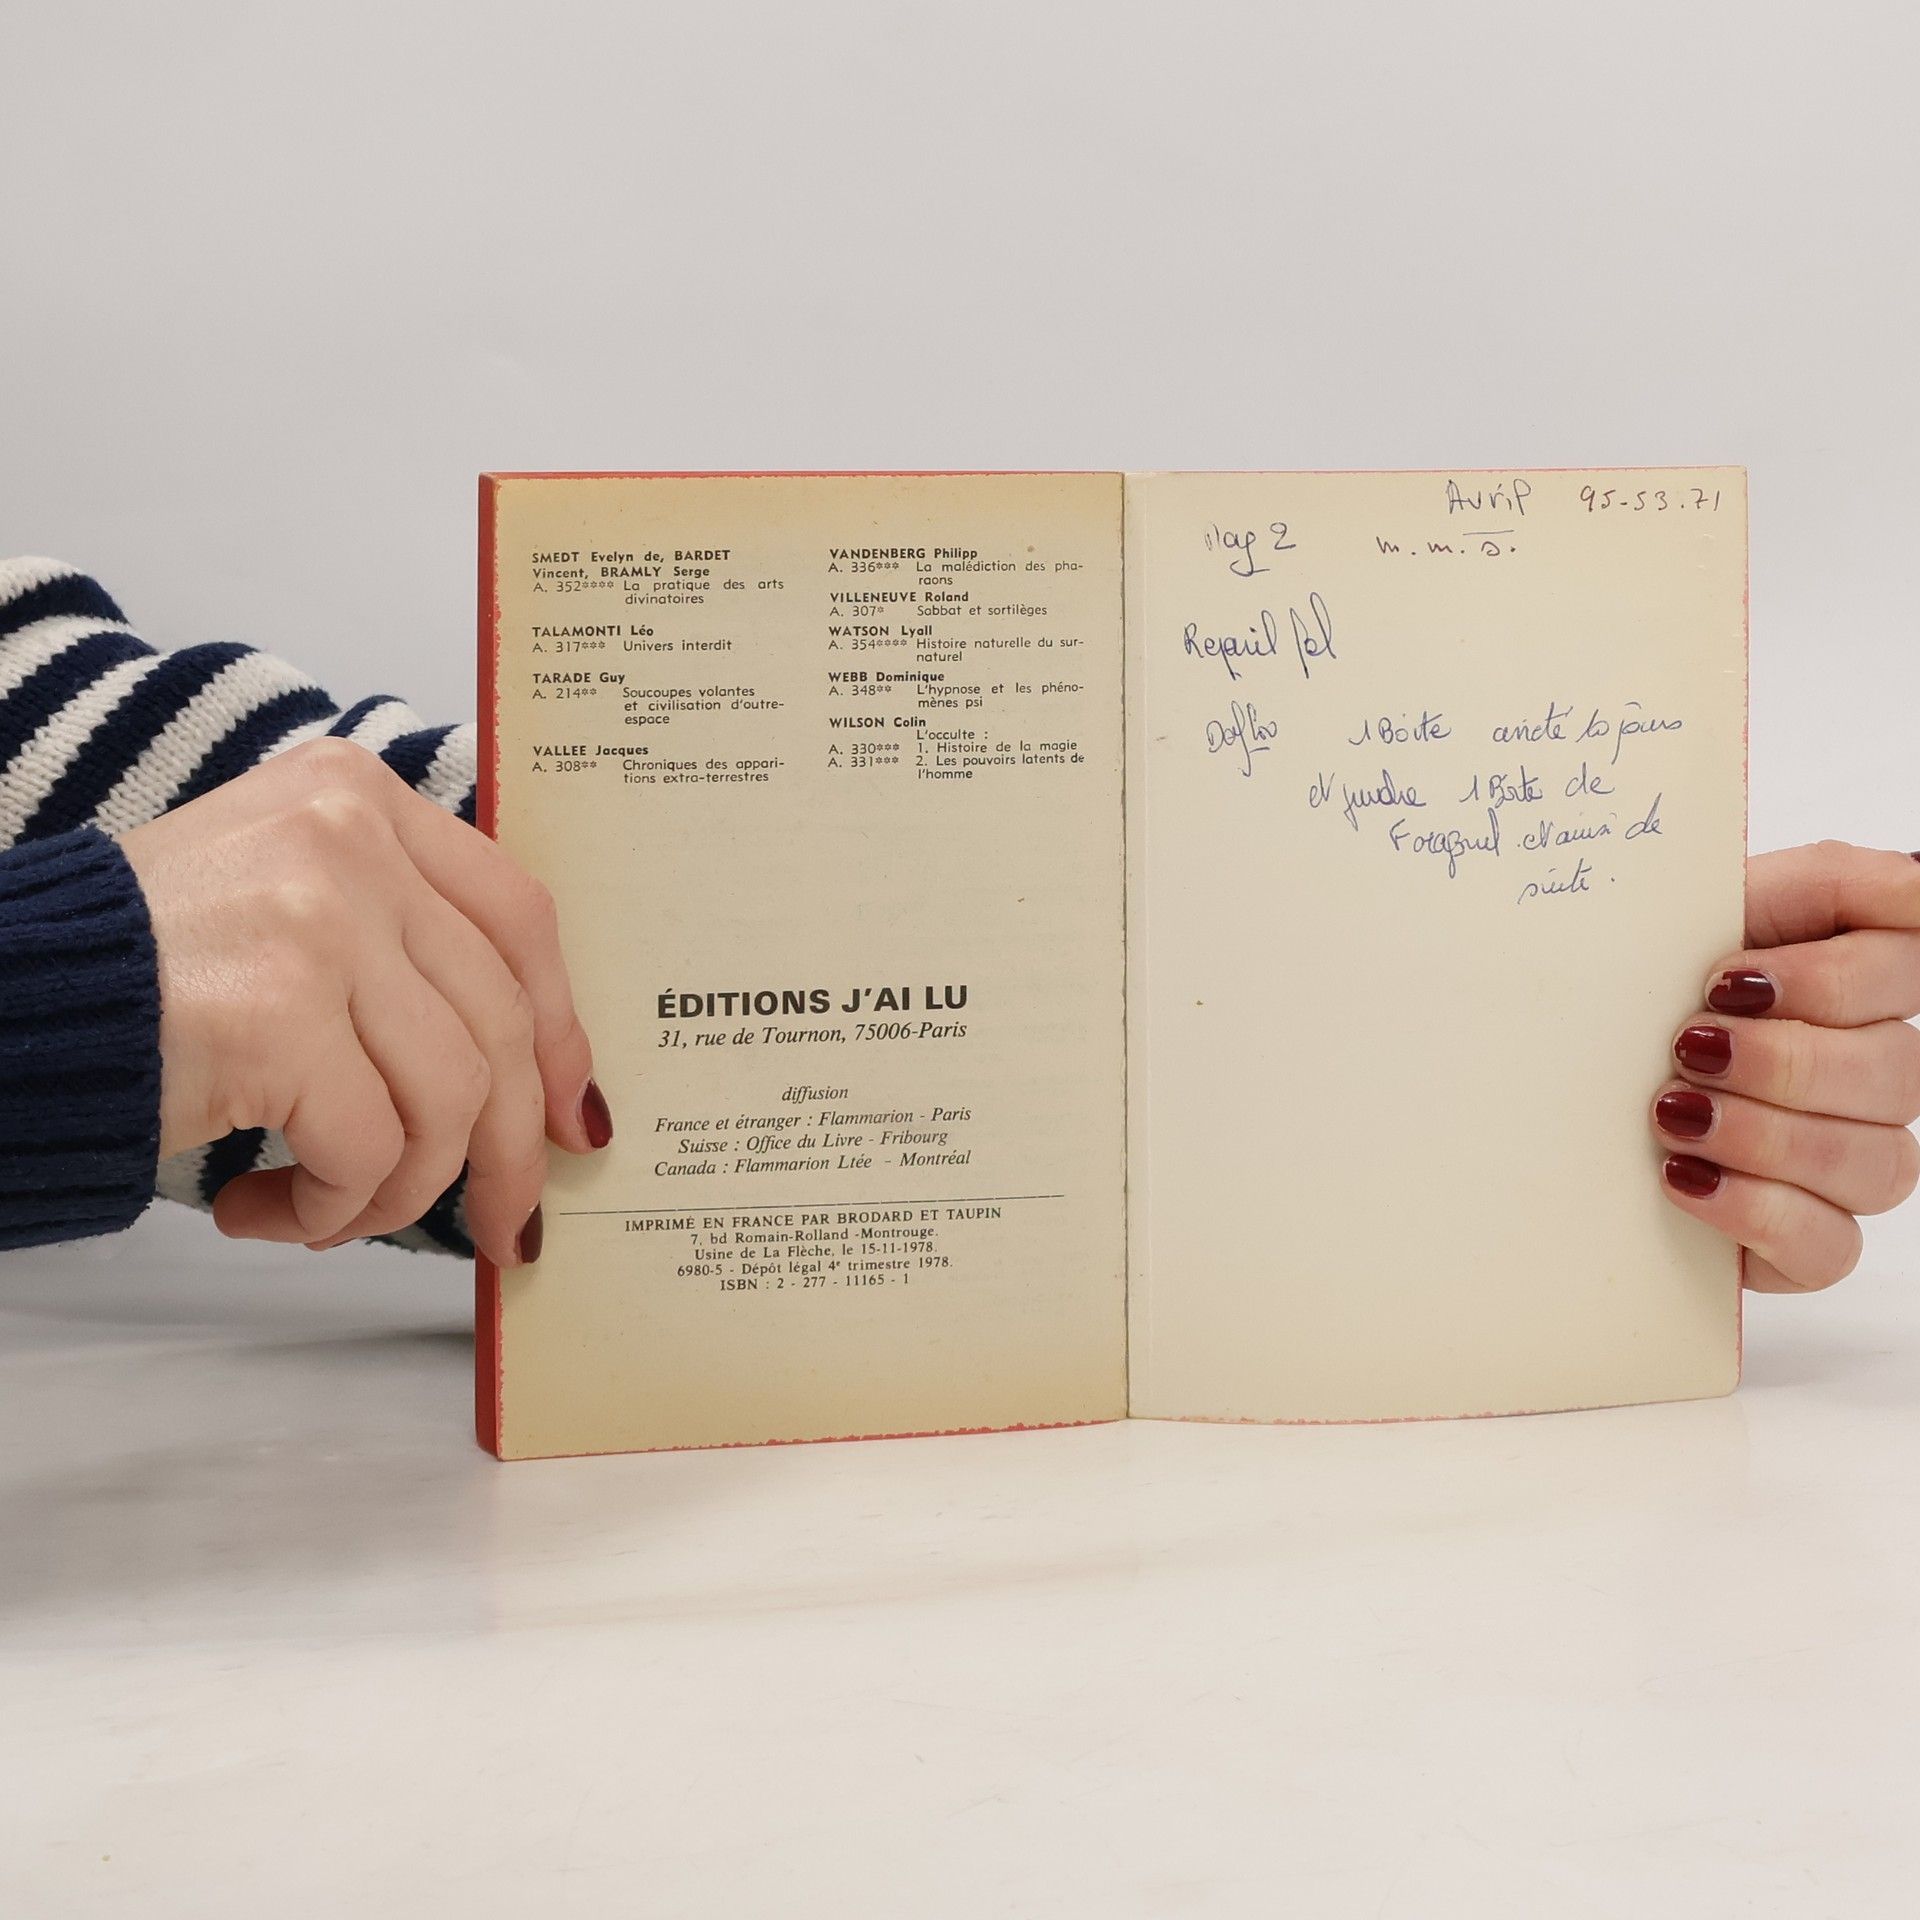 SMEDT Evelyn de, BARDET
Vincent, BRAMLY Serge
A. 352**** La pratique des arts
divinatoires
TALAMONTI Léo
A. 317*** Univers interdit
TARADE Guy
A. 214** Soucoupes volantes
et civilisation d'outre-
espace
VALLEE Jacques
A. 308** Chroniques des appari-
tions extra-terrestres
VANDENBERG Philipp
A. 336*** La malédiction des pha-
raons
VILLENEUVE Roland
A. 307* Sabbat et sortilèges
WATSON Lyall
A. 354**** Histoire naturelle du sur-
naturel
WEBB Dominique
A. 348** L'hypnose et les phéno-
mènes psi
WILSON Colin
L'occulte :
A. 330*** 1. Histoire de la magie
A. 331*** 2. Les pouvoirs latents de
l'homme
ÉDITIONS J'AI LU
31, rue de Tournon, 75006-Paris
diffusion
France et étranger : Flammarion - Paris
Suisse : Office du Livre - Fribourg
Canada : Flammarion Ltée - Montréal
IMPRIMÉ EN FRANCE PAR BRODARD ET TAUPIN
7, bd Romain-Rolland -Montrouge.
Usine de La Flèche, le 15-11-1978.
6980-5 - Dépôt légal 4e trimestre 1978.
ISBN : 2 - 277 - 11165 - 1
Avril 95-53.71
Mag 2 m.m.s.
1 Boite jours
1 Boite de
et ainsi de
suite.